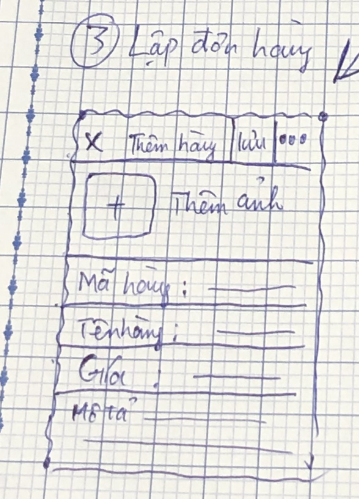 ③ Lập đơn hàng
X Thêm hàng lưu •••
+ Thêm ảnh
Mã hàng :
Tên hàng :
Giá :
Mô tả